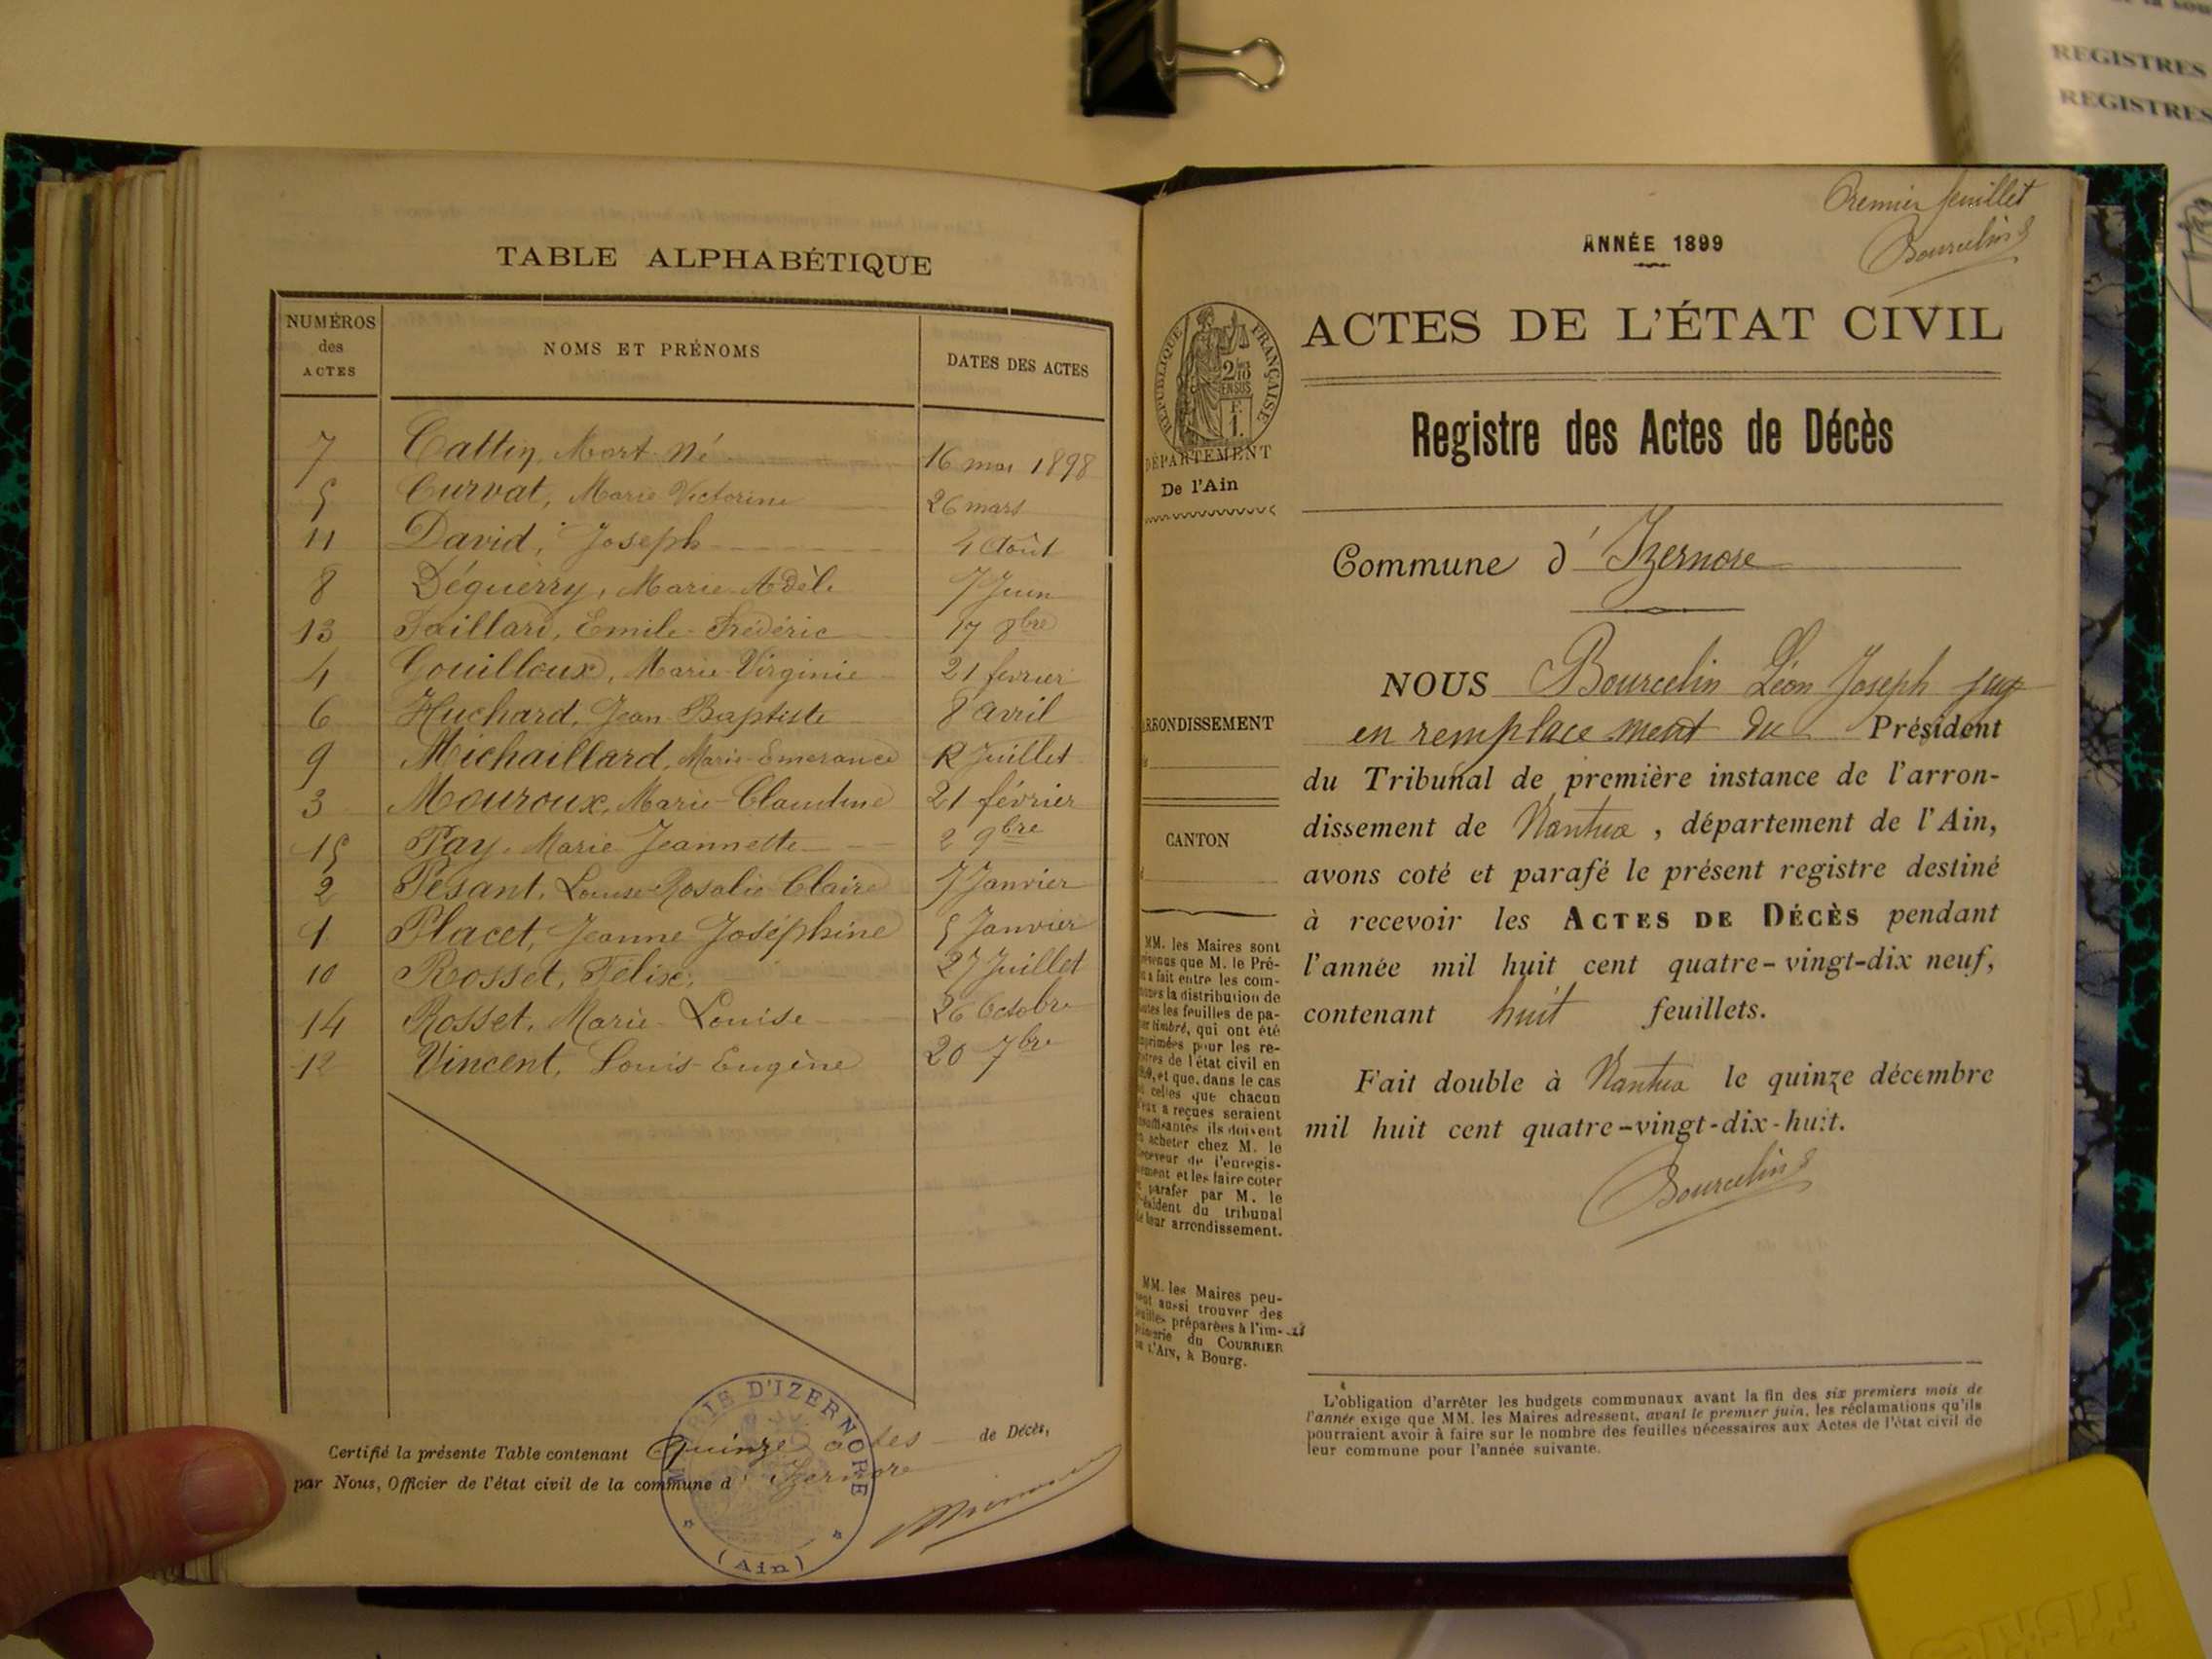 REGISTRES
REGISTRES
TABLE ALPHABÉTIQUE
NUMÉROS des ACTES NOMS ET PRÉNOMS DATES DES ACTES
7 Cattin, Mort-Né 16 mai 1898
5 Curvat, Marie Victorine 26 mars
11 David, Joseph 4 Août
8 Déguerry, Marie Adèle 7 Juin
13 Faillard, Emile-Frédéric 17 8bre
4 Gouilloux, Marie-Virginie 21 fevrier
6 Huchard, Jean-Baptiste 8 avril
9 Michaillard, Marie-Emerance Juillet
3 Mouroux, Marie-Claudine 21 février
15 Pay, Marie Jeannette 2 9bre
2 Pesant, Louise-Rosalie-Claire 7 Janvier
1 Placet, Jeanne Joséphine 5 Janvier
10 Rosset, Félix, 27 Juillet
14 Rosset, Marie-Louise 26 Octobre
12 Vincent, Louis-Eugène 20 7bre
Certifié la présente Table contenant Quinze actes de Décès,
par Nous, Officier de l'état civil de la commune d'Izernore
MAIRIE D'IZERNORE
(Ain)
Premier feuillet
Bourcelin
ANNÉE 1899
ACTES DE L'ÉTAT CIVIL
RÉPUBLIQUE FRANÇAISE
2/10 EN SUS
F. 1.
DÉPARTEMENT
De l'Ain
Registre des Actes de Décès
Commune d'Izernore
NOUS Bourcelin Léon Joseph juge
en remplacement du Président
du Tribunal de première instance de l'arron-
dissement de Nantua, département de l'Ain,
avons coté et parafé le présent registre destiné
à recevoir les ACTES DE DÉCÈS pendant
l'année mil huit cent quatre-vingt-dix neuf,
contenant huit feuillets.
Fait double à Nantua le quinze décembre
mil huit cent quatre-vingt-dix-huit.
Bourcelin
ARRONDISSEMENT
CANTON
MM. les Maires sont
prévenus que M. le Pré-
fet a fait entre les com-
munes la distribution de
toutes les feuilles de pa-
pier timbré, qui ont été
imprimées pour les re-
gistres de l'état civil en
1899, et que, dans le cas
où celles que chacun
d'eux a reçues seraient
insuffisantes ils doivent
en acheter chez M. le
Receveur de l'enregis-
trement et les faire coter
et parafer par M. le
Président du tribunal
de leur arrondissement.
MM. les Maires peu-
vent aussi trouver des
feuilles préparées à l'im-
primerie du COURRIER
DE L'AIN, à Bourg.
L'obligation d'arrêter les budgets communaux avant la fin des six premiers mois de
l'année exige que MM. les Maires adressent, avant le premier juin, les réclamations qu'ils
pourraient avoir à faire sur le nombre des feuilles nécessaires aux Actes de l'état civil de
leur commune pour l'année suivante.